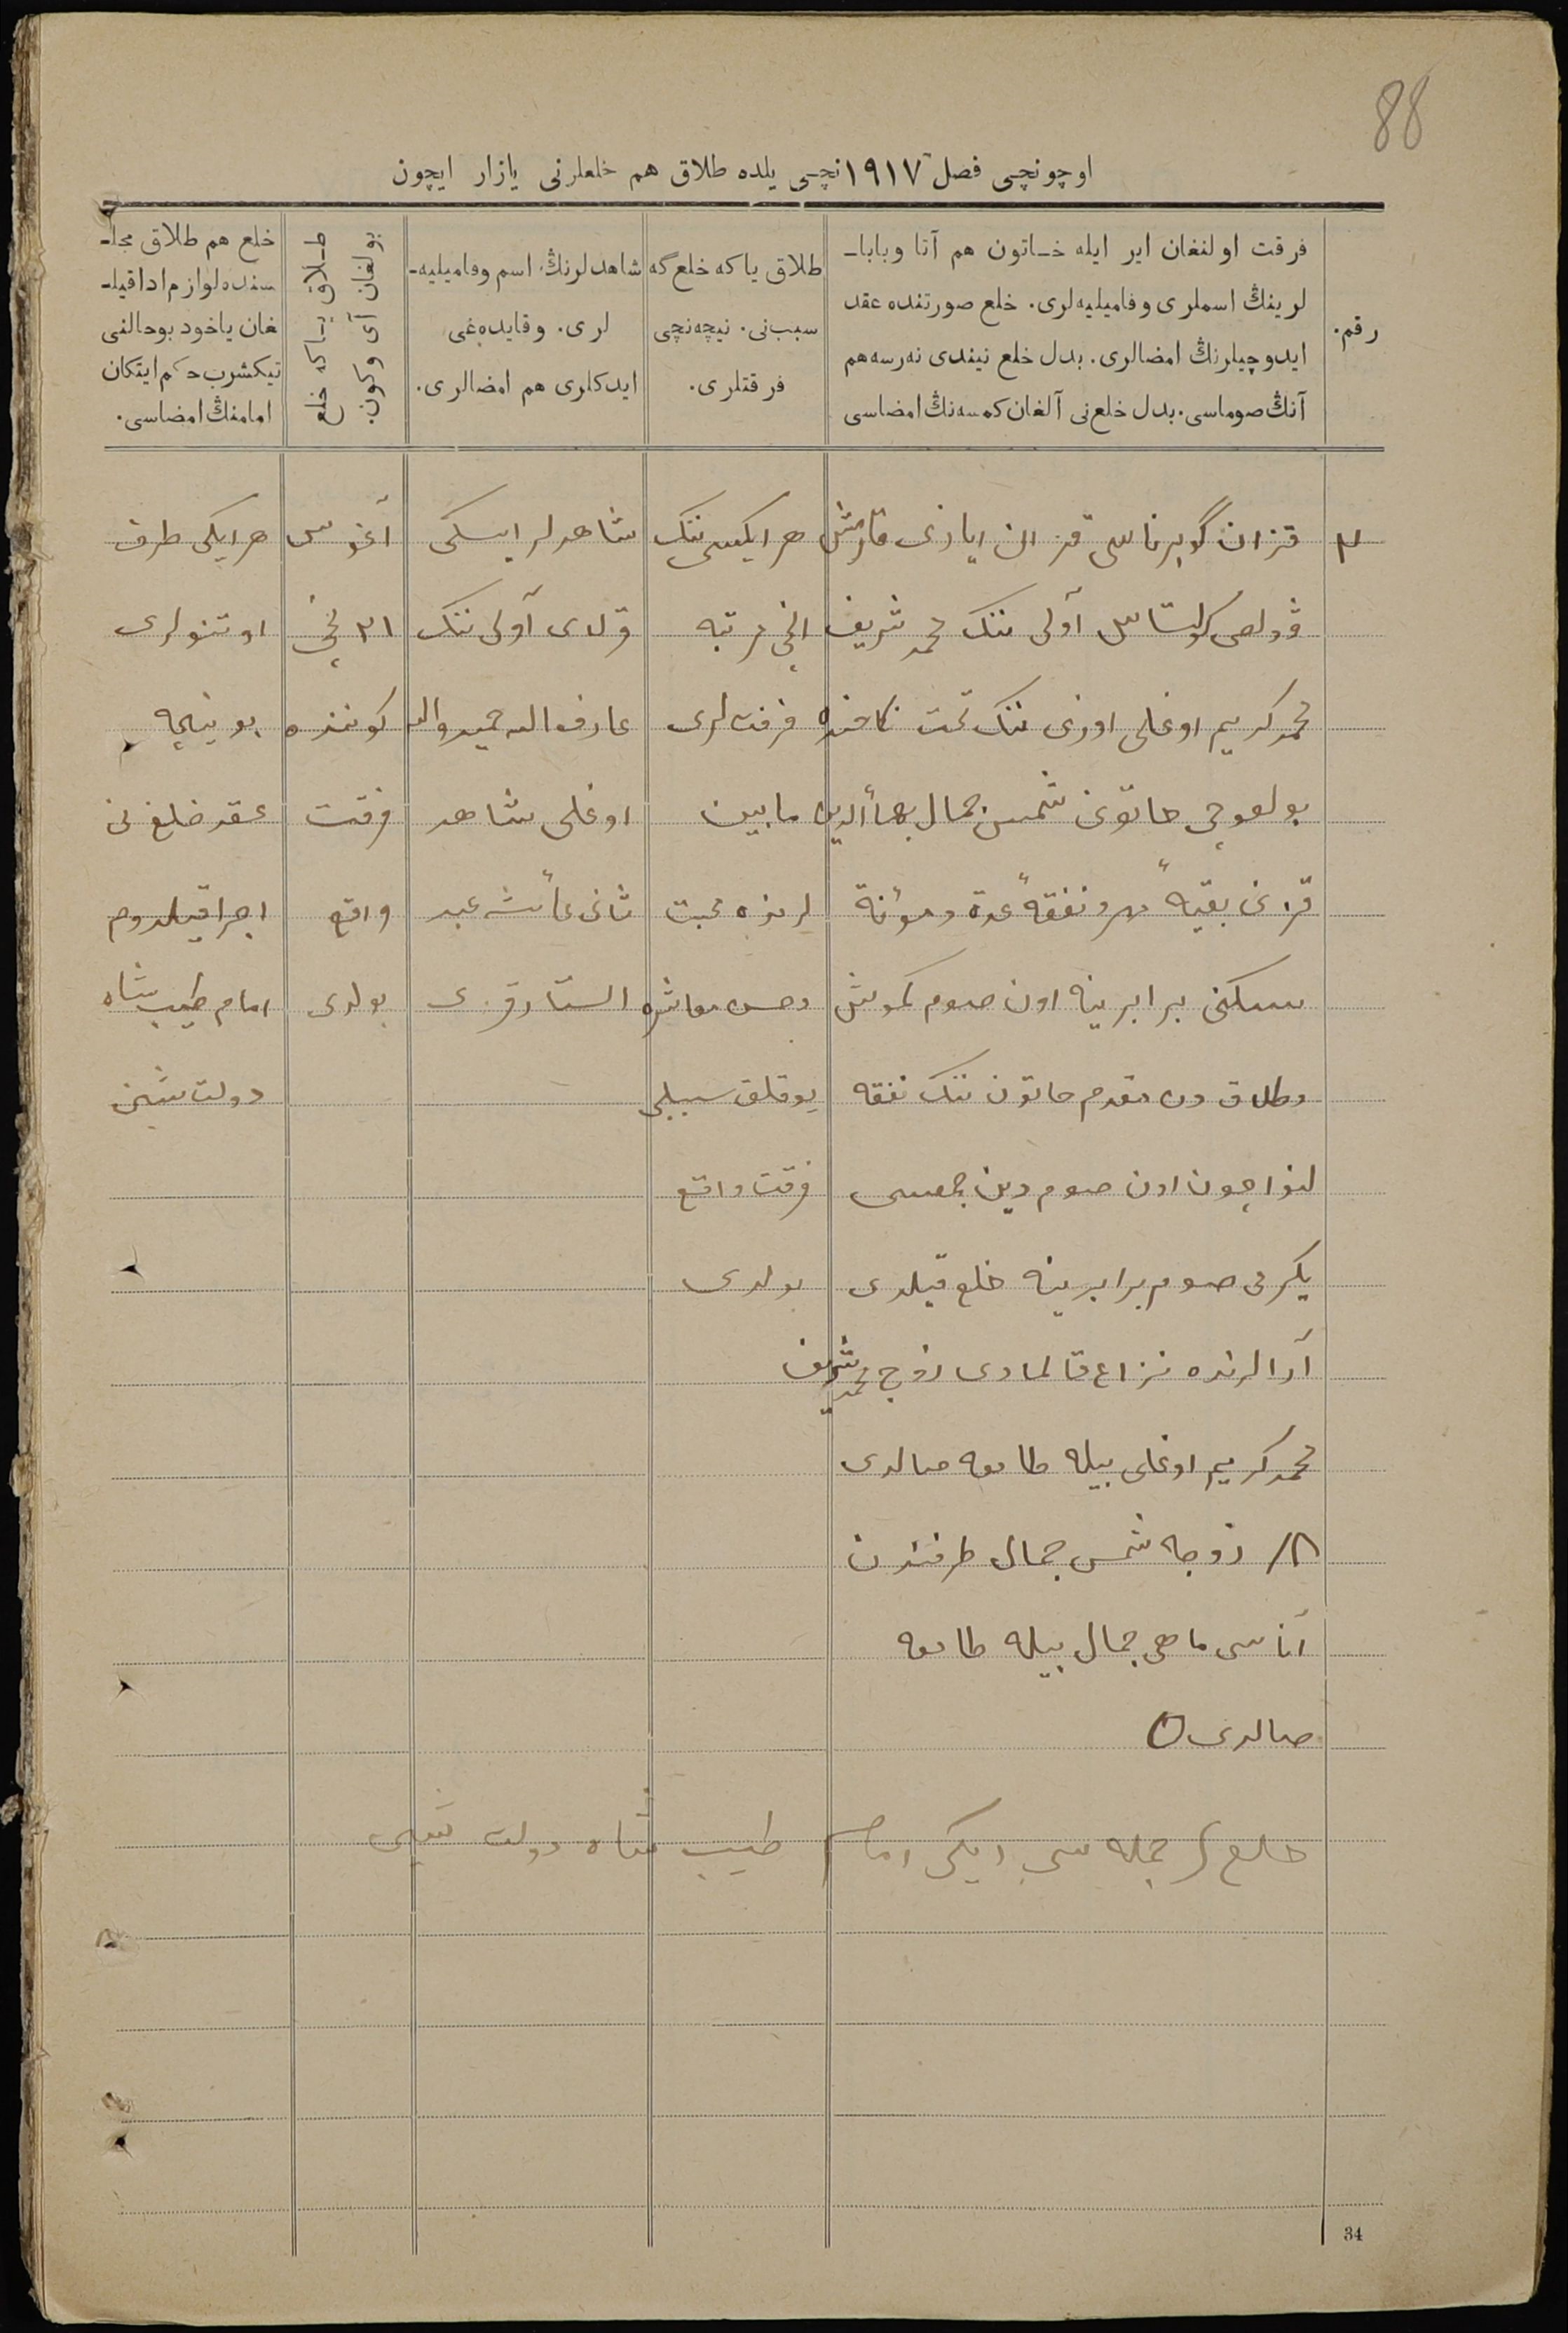 88
اوچونچی فصل ١٩١٧ نچی یلده طلاق هم خلعلرنی یازار ایچون
رقم.
فرقت اولنغان ایر ایله خـاتون هم آتا وباباـ
لرینڭ اسملری وفامیلیه‌لری. خلع صورتنده عقد
ایدوچیلرنڭ امضالری. بدل خلع نیندی نه‌رسه هم
آنڭ صوماسی. بدل خلع‌نی آلغان کمسه‌نڭ امضاسی
طلاق یا که خلع گه
سبب‌نی. نیچه‌نچی
فرقتلری.
شاهدلرنڭ اسم وفامیلیه‌ـ
لری. وقایده‌غی
ایدکلری هم امضالری.
طـلاق یـاکه خلع
بولغان آی وکون.
خلع هم طلاق مجلـ
سنده لوازم ادا قیلـ
غان یاخود بو حالنی
تیکشرب حکم ایتکان
امامنڭ امضاسی.
٣
قزان گوبرناسی قزان ایازی
آولی ننک محمد شریف
محمد کریم اوغلی اوزی ننک تحت نکاحنده
بولغوچی خاتونی شمس جمال بهاءالدین
قزی بقیهٔ مهر ونفقهٔ عدة ومؤنة
سکنی برابرینه اون صوم کموش
وطلاق دن مقدم خاتون ننک نفقه
اچون اون صوم دین جمعسی
یکرمی صوم برابرینه خلع قیلدی
آرالرنده نزاع قالمادی زوج محمد شریف
محمد کریم اوغلی بیله طامغه صالدی
زوجه شمس جمال طرفندن
آناسی ماهی جمال بیله طامغه
صالدی
هر ایکیسی ننک
انچی مرتبه
فرقت لری
مابین
لرنده محبت
وحسن معاشره
یوقلق سببلی
فرقت واقع
بولدی
شاهدلر ایسکی
قلای آولی ننک
عارف الله حمید والله
اوغلی شاهد
ثانی عائشه عبد
الستار قزی
آغوس
٢١ نچی
کوننده
فرقت
واقع
بولدی
هر ایکی طرف
اوتنولری
بوینچه
عقد خلع نی
اجرا قیلدوم
امام طیب شاه
دولت شین
خلع جمله سی ایکی امام طیب شاه دولت شین
34